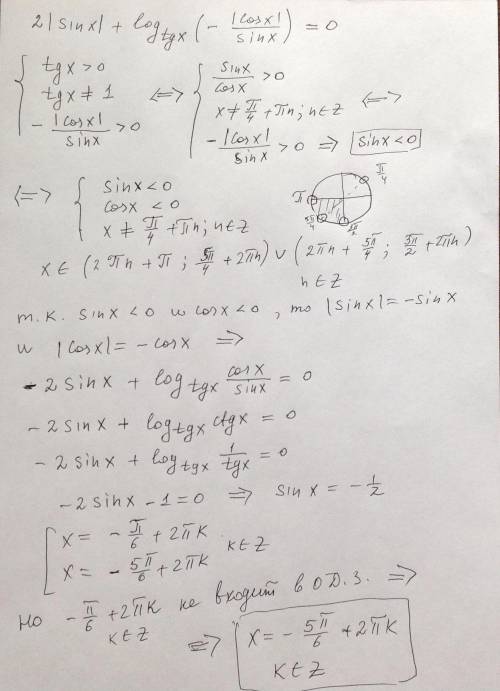 2|sinx| + log_{tgx} (- |cosx|/sinx) = 0
{ tgx > 0 <=> { sinx/cosx > 0
tgx ≠ 1 x ≠ π/4 + πn; n∈Z <=>
- |cosx|/sinx > 0 - |cosx|/sinx > 0 => sinx<0
<=> { sinx < 0
cosx < 0
x ≠ π/4 + πn; n∈Z
π/4
π
5π/4
3π/2
x ∈ (2πn + π; 5π/4 + 2πn) ∪ (2πn + 5π/4; 3π/2 + 2πn)
n∈Z
т.к. sinx < 0 и cosx < 0, то |sinx| = -sinx
и |cosx| = -cosx =>
-2sinx + log_{tgx} cosx/sinx = 0
-2sinx + log_{tgx} ctgx = 0
-2sinx + log_{tgx} 1/tgx = 0
-2sinx - 1 = 0 => sinx = -1/2
[ x = -π/6 + 2πk
x = -5π/6 + 2πk k∈Z
но -π/6 + 2πk не входит в О.Д.З. =>
k∈Z
=> x = -5π/6 + 2πk
k∈Z